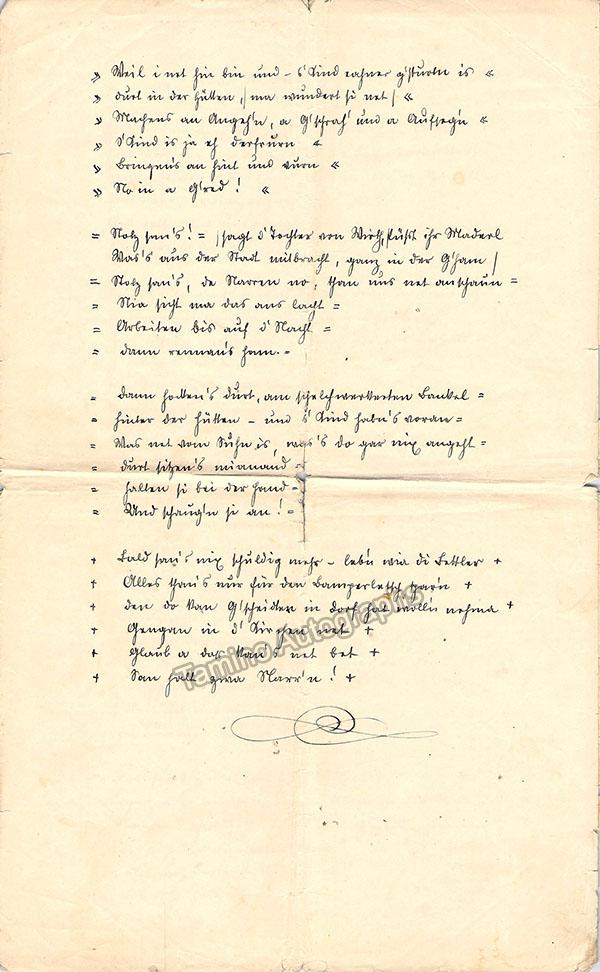 » Weil i net hin bin und – s'Kind rahner g'sturbn is «
» durt in der Hütten, / ma wundert si net / «
» Machens an Angeh'n, a G'schrah' und a Aufseg'n «
» S'Kind is ja eh derfrurn «
» Bringen's an hint und vurn «
» No in a G'red! «
= Stolz san's! = / sagt d'Tochter von Wirth, ihr Maderl
Was's aus der Stadt mitbracht, ganz in der G'ham /
= Stolz san's, de Narren no, than uns net anschaun =
= Nia sicht ma das ans lacht =
= Arbeiten bis auf d'Nacht =
= dann rennan's ham. =
= dann hocken's durt, am Bankel =
= hinter der Hütten – und s'Kind habn's voran =
= Was net vom Suhn is, was's do gar nix angeht =
= durt sitzen's mianand =
= halten si bei der Hand =
= Und schaug'n si an! =
+ Bald san's nix schuldig mehr – leb'n wia di Bettler +
+ Alles than's nur für den +
+ den do kan G'scheidter in Dorf hat will'n nehma +
+ Gengan in d'Kirchen net +
+ Glaub a das kan's net bet +
+ San halt zwa Narr'n! +
Tamino Autographs